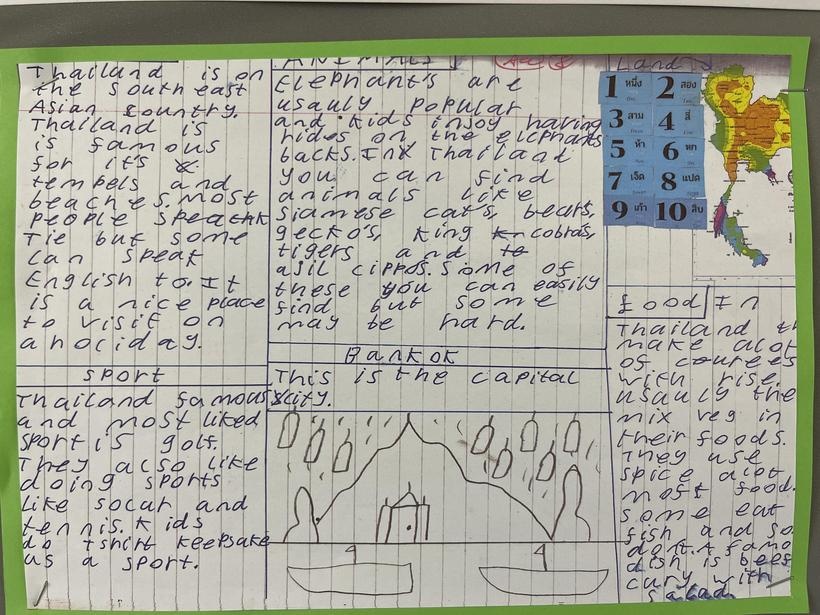 Thailand is on
the south east
Asian country.
Thailand is
is famous
for it's
tempels and
beaches. most
people speack
Tie but some
can speak
English to. It
is a nice place
to visit on
a hociday.
sport
Thailand famous
and most liked
sport is golf.
They also like
doing sports
like socur and
tennis. Kids
do tshirt keepsake
us a sport.
ANIMALS
Elephant's are
usauly popular
and kids injoy having
rides on the elephants
backs. In Thailand
you can find
animals like
siamese cat's, bears,
gecko's, king cobras,
tigers and
ajil cippos. Some of
these you can easily
find but some
may be hard.
Bankok
This is the capital
city.
Land
1 หนึ่ง 2 สอง
3 สาม 4 สี่
5 ห้า 6 หก
7 เจ็ด 8 แปด
9 เก้า 10 สิบ
food In
Thailand th
make alot
of courees
with rise.
usauly the
mix veg in
their foods.
They use
spice alot
most food.
some eat
fish and so
dont. A famo
dish is bees
cury with
salad